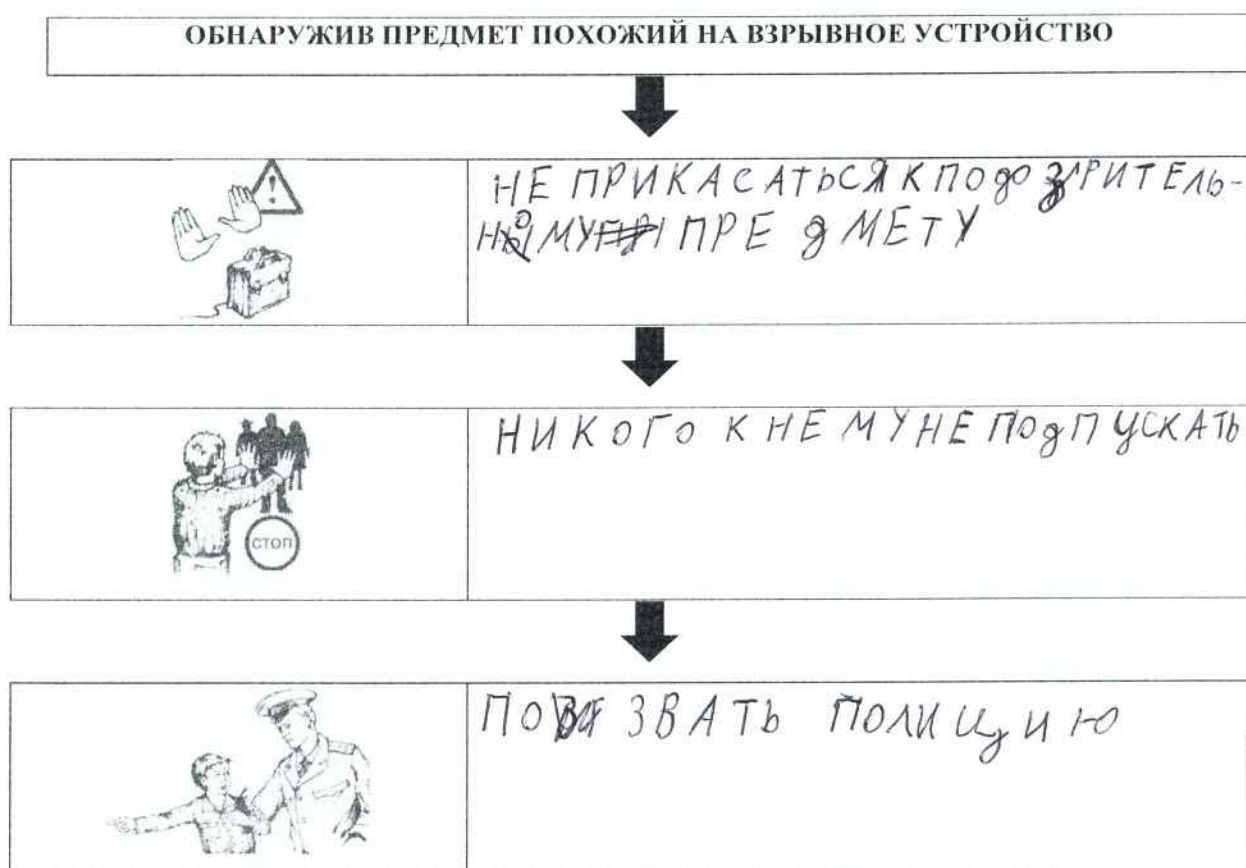 ОБНАРУЖИВ ПРЕДМЕТ ПОХОЖИЙ НА ВЗРЫВНОЕ УСТРОЙСТВО
НЕ ПРИКАСАТЬСЯ К ПОдОЗРИТЕЛЬ-
НОМУ ПРЕдМЕТУ
НИКОГО К НЕМУ НЕ ПОдПУСКАТЬ
СТОП
ПОЗВАТЬ ПОЛИЦИЮ